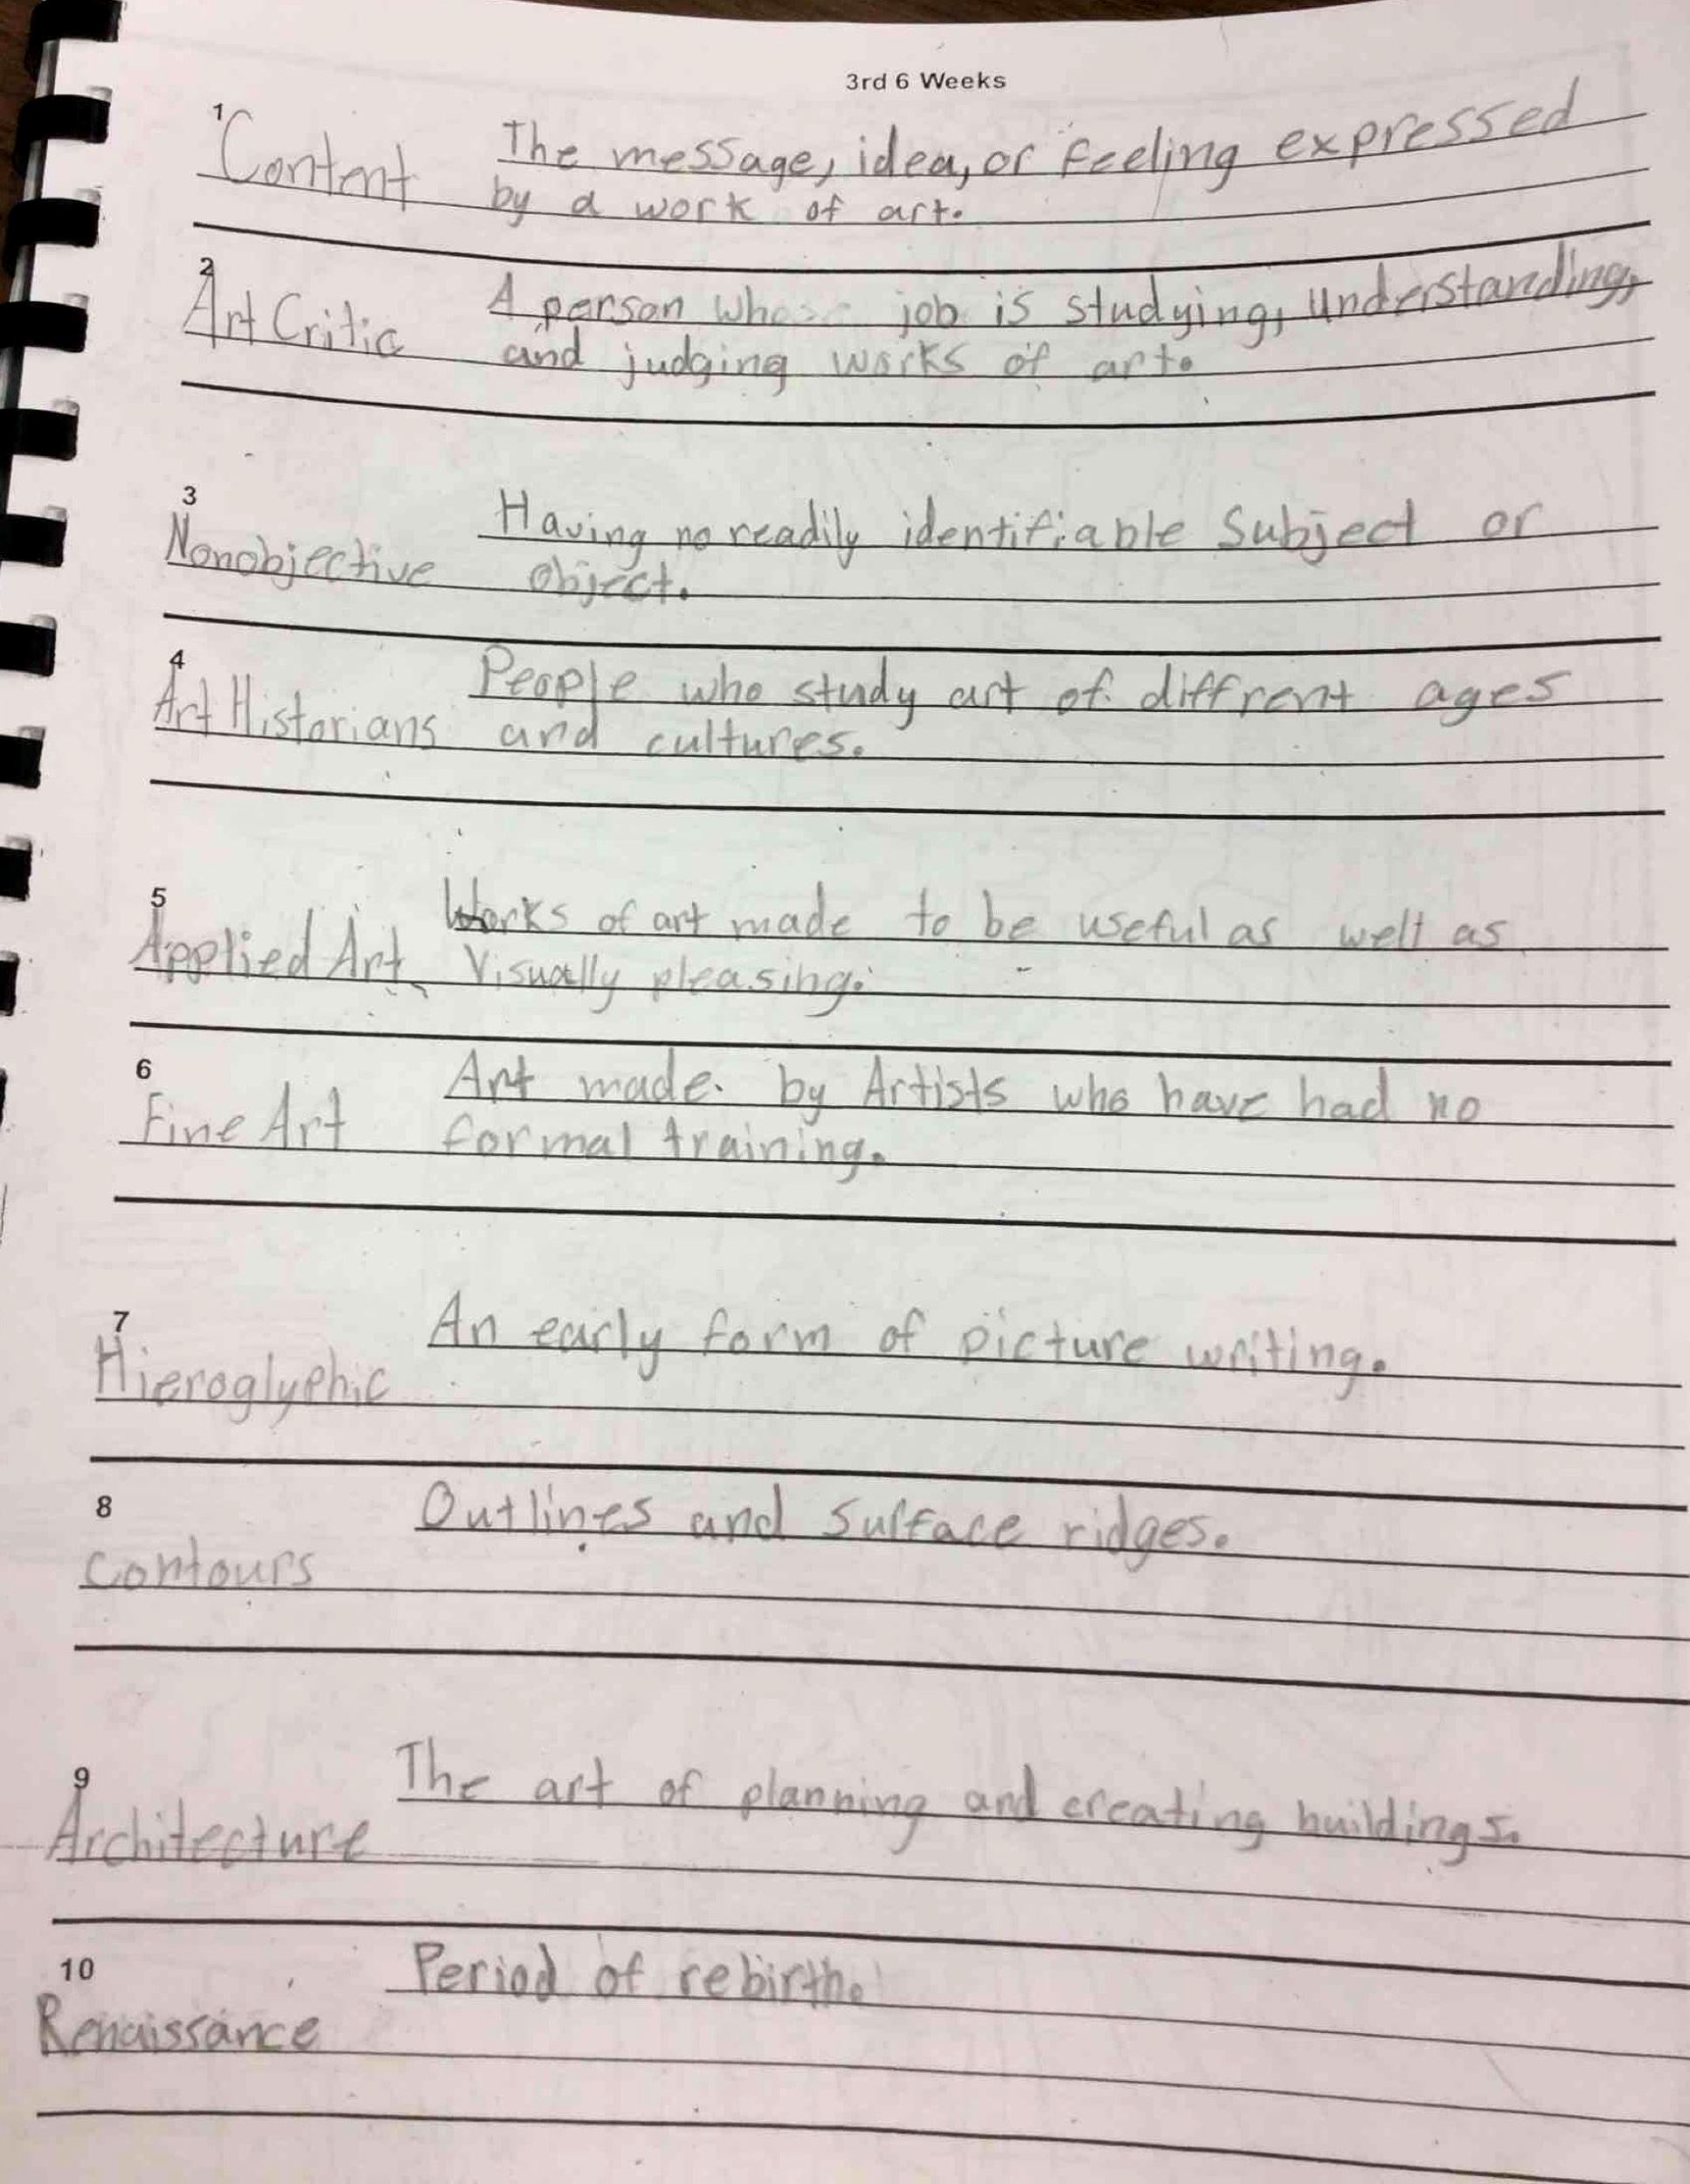 3rd 6 Weeks
1
Content The message, idea, or feeling expressed
by a work of art.
2
Art Critic A person whose job is studying, understanding,
and judging works of art.
3
Nonobjective Having no readily identifiable Subject or
object.
4
Art Historians People who study art of diffrent ages
and cultures.
5
Applied Art Works of art made to be useful as well as
Visually pleasing.
6
Fine Art Art made by Artists who have had no
formal training.
7
Hieroglyphic An early form of picture writing.
8
Contours Outlines and surface ridges.
9
Architecture The art of planning and creating buildings.
10
Renaissance Period of rebirth.